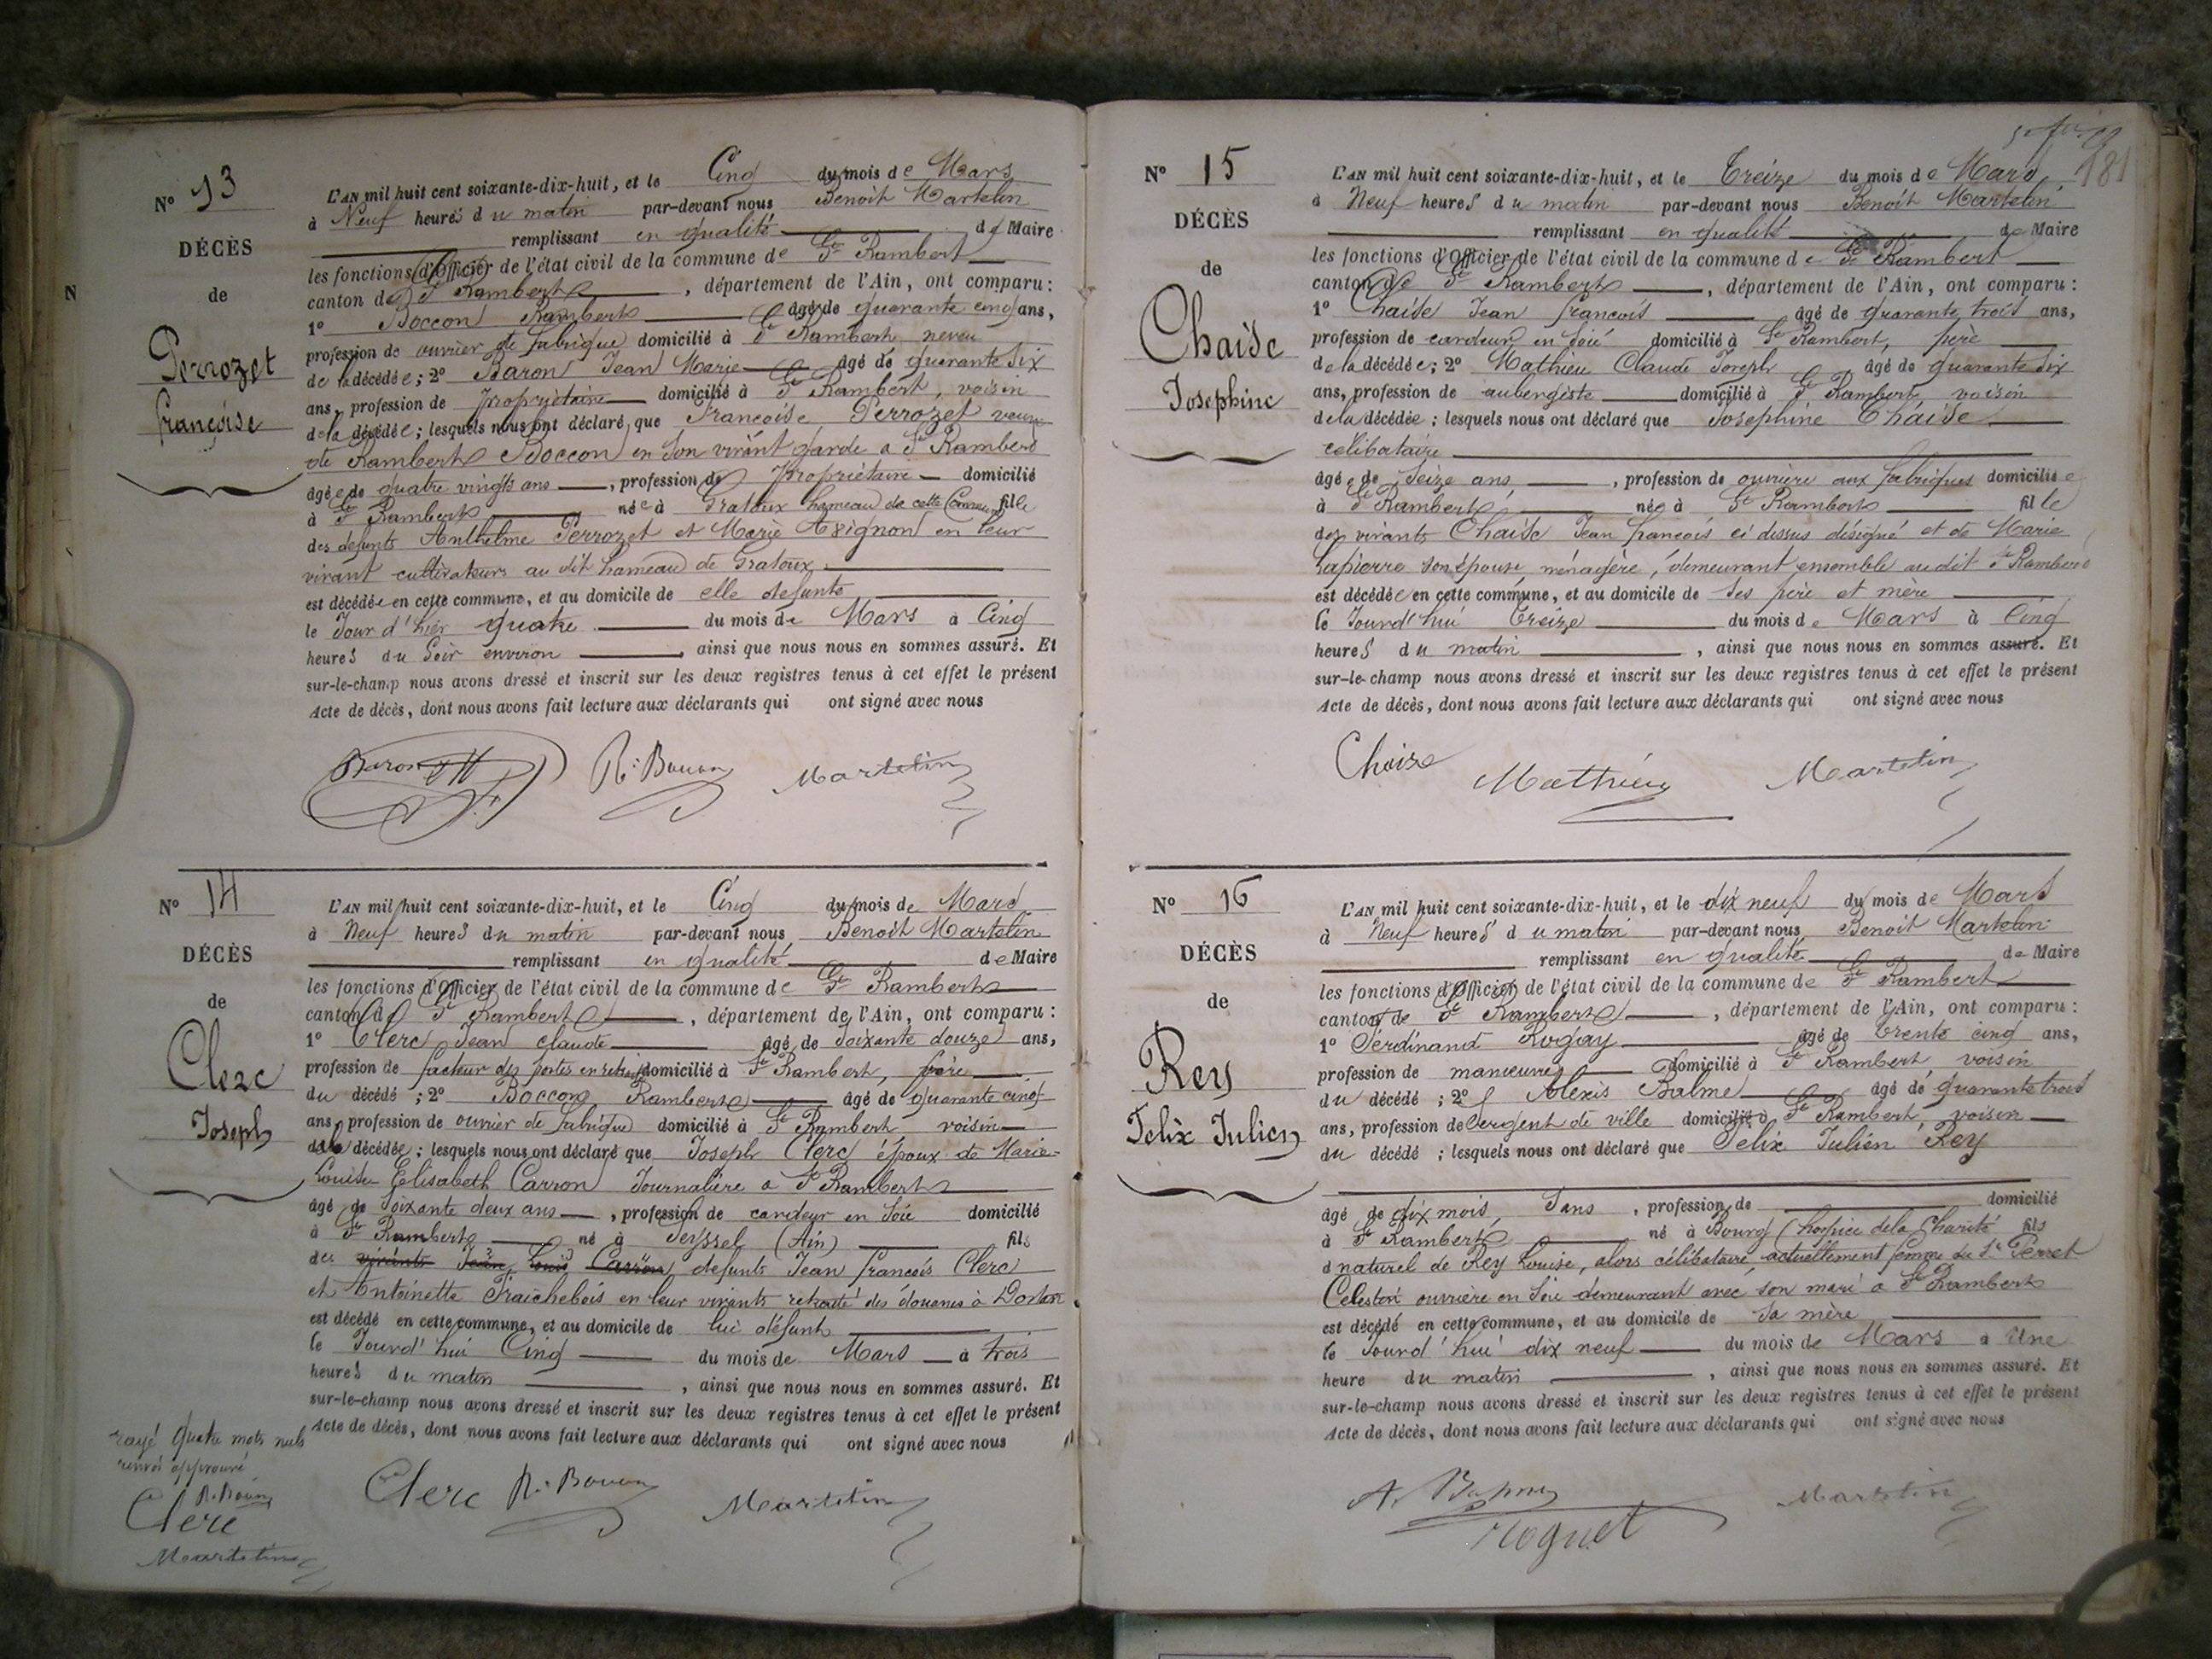 N
N° 13
DÉCÈS
de
Perrozet
françoise
L'AN mil huit cent soixante-dix-huit, et le Cinq du mois de Mars
à Neuf heures du matin par-devant nous Benoit Martelin
remplissant en qualité de Maire
les fonctions d'Officier de l'état civil de la commune de St Rambert
canton de St Rambert, département de l'Ain, ont comparu :
1° Boccon Rambert âgé de quarante cinq ans,
profession de ouvrier de fabrique domicilié à St Rambert neveu
de la décédée ; 2° Baron Jean Marie âgé de quarante six
ans, profession de propriétaire domicilié à St Rambert, voisin
de la décédée ; lesquels nous ont déclaré que Françoise Perrozet veuve
de Rambert Boccon en son vivant garde a St Rambert
âgée de quatre vingts ans, profession de Propriétaire domicilié
à St Rambert née à Gratoux hameau de cette Commune fille
des defunts Anthelme Perrozet et Marie en leur
vivant cultivateurs au dit hameau de Gratoux
est décédée en cette commune, et au domicile de elle defunte
le Jour d'hier quatre du mois de Mars à Cinq
heures du Soir environ, ainsi que nous nous en sommes assuré. Et
sur-le-champ nous avons dressé et inscrit sur les deux registres tenus à cet effet le présent
Acte de décès, dont nous avons fait lecture aux déclarants qui ont signé avec nous
Baron R. Boccon Martelin
N° 14
DÉCÈS
de
Clerc
Joseph
L'AN mil huit cent soixante-dix-huit, et le Cinq du mois de Mars
à Neuf heures du matin par-devant nous Benoit Martelin
remplissant en qualité de Maire
les fonctions d'Officier de l'état civil de la commune de St Rambert
canton de St Rambert, département de l'Ain, ont comparu :
1° Clerc Jean claude âgé de Soixante douze ans,
profession de facteur des postes en retraite domicilié à St Rambert, frère
du décédé ; 2° Boccon Rambert âgé de quarante cinq
ans, profession de ouvrier de fabrique domicilié à St Rambert voisin
du décédé ; lesquels nous ont déclaré que Joseph Clerc époux de Marie-
Louise Elisabeth Carron Journalière a St Rambert
âgé de Soixante deux ans, profession de cardeur en Soie domicilié
à St Rambert né à Seyssel (Ain) fils
des vivants Jean Louis Carron defunts Jean françois Clerc
et Antoinette Fraichebois en leur vivants retraité des douanes à Dortan
est décédé en cette commune, et au domicile de lui défunt
le Jourd'hui Cinq du mois de Mars à trois
heures du matin, ainsi que nous nous en sommes assuré. Et
sur-le-champ nous avons dressé et inscrit sur les deux registres tenus à cet effet le présent
Acte de décès, dont nous avons fait lecture aux déclarants qui ont signé avec nous
rayé quatre mots nuls
renvoi approuvé
R. Boccon
Clerc
Martelin
Clerc R. Boccon Martelin
181
N° 15
DÉCÈS
de
Chaise
Josephine
L'AN mil huit cent soixante-dix-huit, et le Treize du mois de Mars
à Neuf heures du matin par-devant nous Benoît Martelin
remplissant en qualité de Maire
les fonctions d'Officier de l'état civil de la commune de St Rambert
canton de St Rambert, département de l'Ain, ont comparu :
1° Chaise Jean françois âgé de quarante trois ans,
profession de cardeur en Soie domicilié à St Rambert, père
de la décédée ; 2° Mathieu Claude Joseph âgé de quarante Six
ans, profession de aubergiste domicilié à St Rambert, voisin
de la décédée ; lesquels nous ont déclaré que Josephine Chaise
celibataire
âgée de Seize ans, profession de ouvrière aux fabriques domiciliée
à St Rambert née à St Rambert fille
des vivants Chaise Jean françois ci dessus désigné et de Marie
Lapierre son épouse ménagère, demeurant ensemble au dit St Rambert
est décédée en cette commune, et au domicile de Ses père et mère
le Jourd'hui Treize du mois de Mars à Cinq
heures du matin, ainsi que nous nous en sommes assuré. Et
sur-le-champ nous avons dressé et inscrit sur les deux registres tenus à cet effet le présent
Acte de décès, dont nous avons fait lecture aux déclarants qui ont signé avec nous
Chaise Mathieu Martelin
N° 16
DÉCÈS
de
Rey
Felix Julien
L'AN mil huit cent soixante-dix-huit, et le dix neuf du mois de Mars
à Neuf heures du matin par-devant nous Benoit Martelin
remplissant en qualité de Maire
les fonctions d'Officier de l'état civil de la commune de St Rambert
canton de St Rambert, département de l'Ain, ont comparu :
1° Ferdinand âgé de trente cinq ans,
profession de manœuvre domicilié à St Rambert voisin
du décédé ; 2° Alexis Balme âgé de quarante trois
ans, profession de Sergent de ville domicilié à St Rambert, voisin
du décédé ; lesquels nous ont déclaré que Felix Julien Rey
âgé de dix mois, Sans, profession de domicilié
à St Rambert né à Bourg (hospice de la Charité fils
naturel de Rey Louise, alors célibataire actuellement femme du Sr Perret
Celestin ouvrière en Soie demeurant avec son mari a St Rambert
est décédé en cette commune, et au domicile de Sa mère
le Jourd'hui dix neuf du mois de Mars à Une
heure du matin, ainsi que nous nous en sommes assuré. Et
sur-le-champ nous avons dressé et inscrit sur les deux registres tenus à cet effet le présent
Acte de décès, dont nous avons fait lecture aux déclarants qui ont signé avec nous
A. Martelin